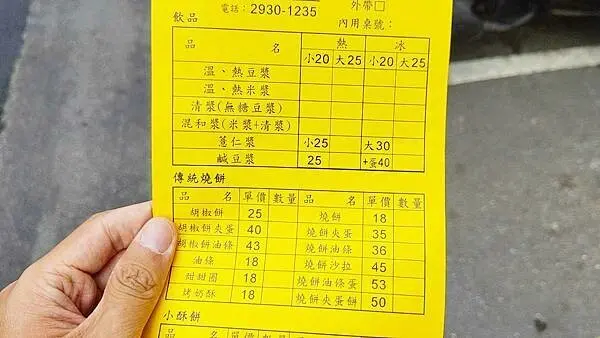 電話：2930-1235 外帶□
飲品 內用桌號：
品 名 熱 冰
小20 大25 小20 大25
溫、熱豆漿
溫、熱米漿
清漿(無糖豆漿)
混和漿(米漿+清漿)
薏仁漿 小25 大30
鹹豆漿 25 +蛋40
傳統燒餅
品 名 單價 數量 品 名 單價 數量
胡椒餅 25 燒餅 18
胡椒餅夾蛋 40 燒餅夾蛋 35
胡椒餅油條 43 燒餅油條 36
油條 18 燒餅沙拉 45
甜甜圈 18 燒餅油條蛋 53
烤奶酥 18 燒餅夾蛋餅 50
小酥餅
品 名 單價 數量